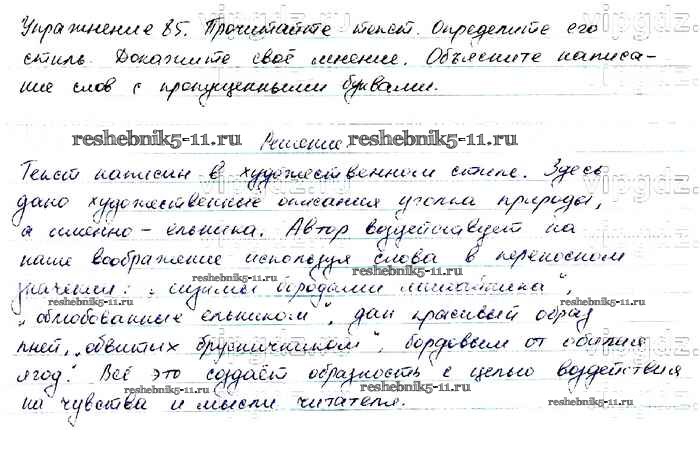 Упражнение 85. Прочитайте текст. Определите его
стиль. Докажите своё мнение. Объясните написа-
ние слов с пропущенными буквами.
reshebnik5-11.ru Решение reshebnik5-11.ru
Текст написан в художественном стиле. Здесь
дано художественные описания уголка природы,
а именно - ельника. Автор воздействует на
наше воображение используя слова в переносном
reshebnik5-11.ru
значении: "сизыми бородами лишайника",
reshebnik5-11.ru reshebnik5-11.ru
"облюбованные ельником", дан красивый образ
пней, "обвитых брусничником", бордовым от обилия
ягод". Всё это создаёт образность с целью воздействия
reshebnik5-11.ru reshebnik5-11.ru
на чувства и мысли читателя.
reshebnik5-11.ru
vipgdz.ru